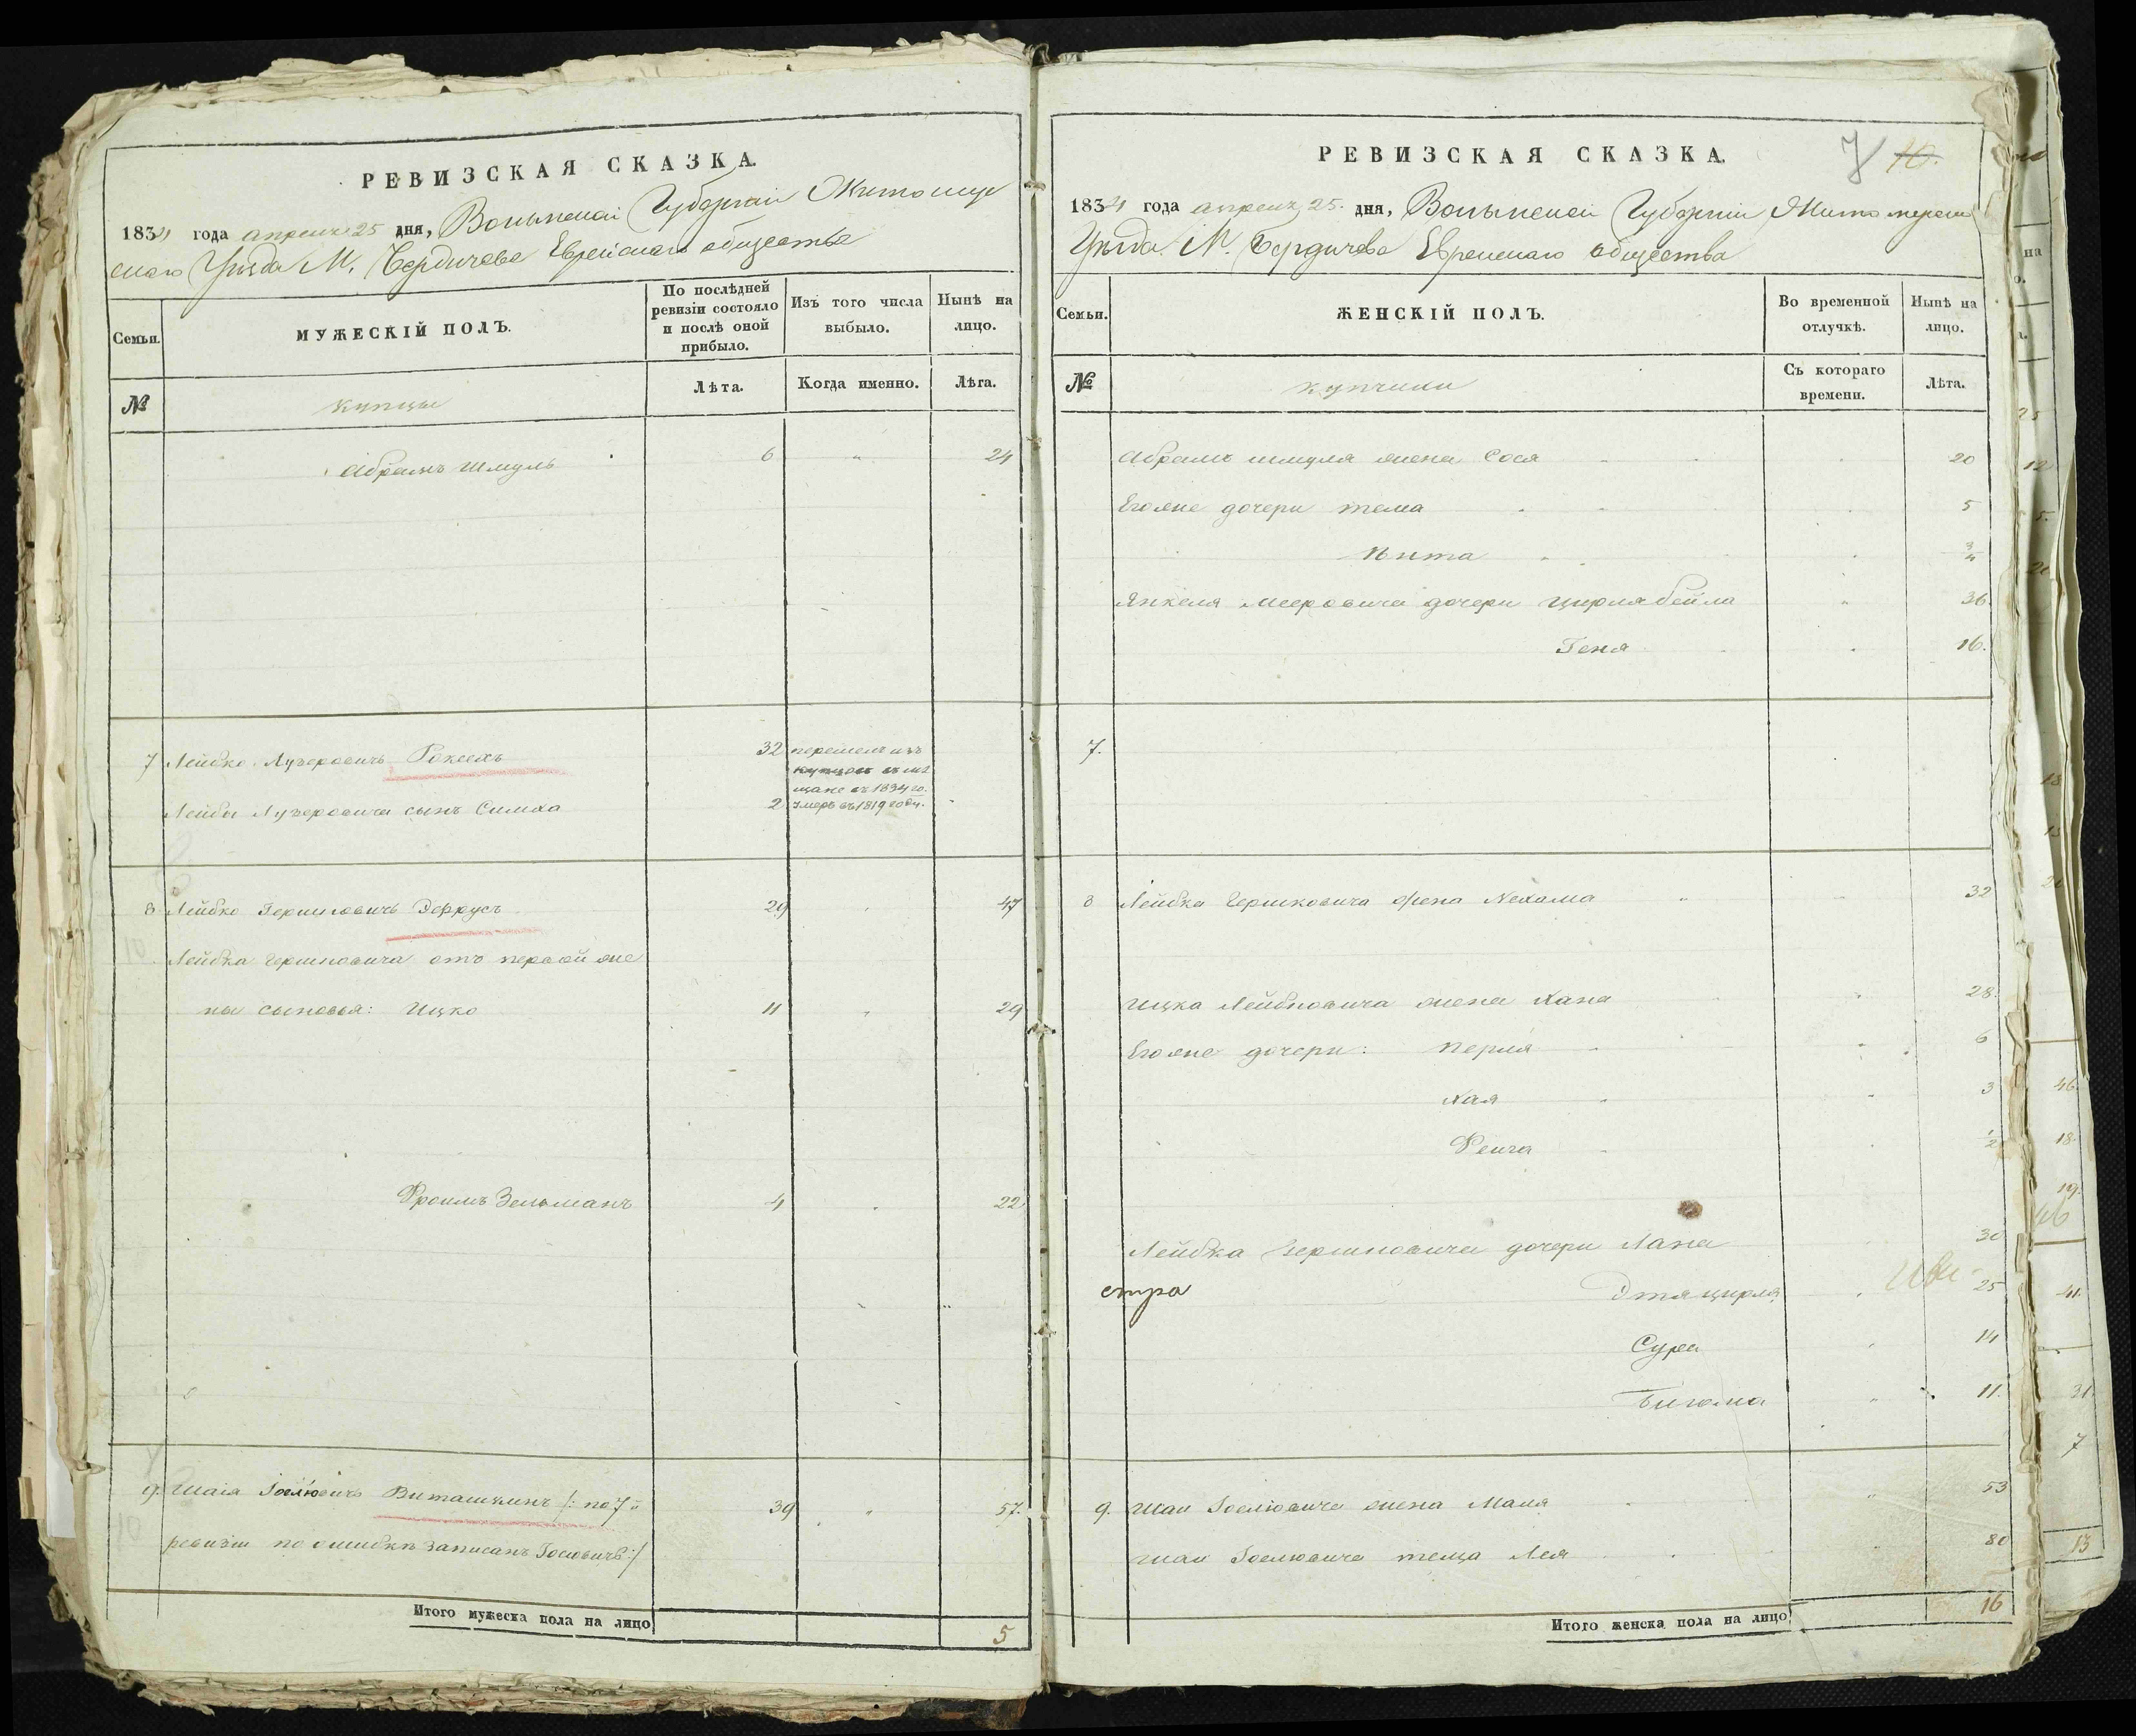 РЕВИЗСКАЯ СКАЗКА.
1834 года апреля 25 дня, Волынской Губернии Житомир
скаго Уезда М. Бердичева Еврейскаго общества
Семьи.
МУЖЕСКІЙ ПОЛЪ.
По послѣдней ревизіи состояло и послѣ оной прибыло.
Изъ того числа выбыло.
Нынѣ на лицо.
№
купцы
Лѣта.
Когда именно.
Лѣта.
Абрамъ Шмуль 6 " 24
7 Лейбко Лузеровичъ Рокеахъ 32 перешелъ изъ
купцовъ въ мѣ
щане въ 1834 го.
Лейбы Лузеровича сынъ Симха 2 умеръ въ 1819 году.
8 Лейбко Гершковичъ Эфрусъ 29 47
Лейбка Гершковича отъ первой же
ны сыновья: Ицко 11 " 29
Фроимъ Зельманъ 4 22
9. Шаія Іослювичъ Виташкинъ /: по 7й 39 " 57.
ревизіи по ошибкѣ записанъ Госювичъ :/
Итого мужеска пола на лицо 5
РЕВИЗСКАЯ СКАЗКА.
7 10.
1834 года апреля 25. дня, Волынской Губерніи Житомирска
Уезда М. Бердичева Еврейскаго общества
Семьи.
ЖЕНСКІЙ ПОЛЪ.
Во временной отлучкѣ.
Нынѣ на лицо.
№
купчихи
Съ котораго времени.
Лѣта.
Абрамъ шмуля жена Сося 20
Егоже дочери тема 5
Пита 3/4
Янкеля Мееровича дочери Цирля бейла 36
Геня 16.
7.
8 Лейбка Гершковича жена Нехама 32
Ицка Лейбковича жена Хана 28.
Егоже дочери: перля 6
Хая 3
Фейга 1/2
Лейбка Гершковича дочери Хана 30
стра
Этя цирля 25
Сура 14
11.
9. Шаи Іослювича жена Маля 53
Шаи Іослювича теща Лея 80
Итого женска пола на лицо 16